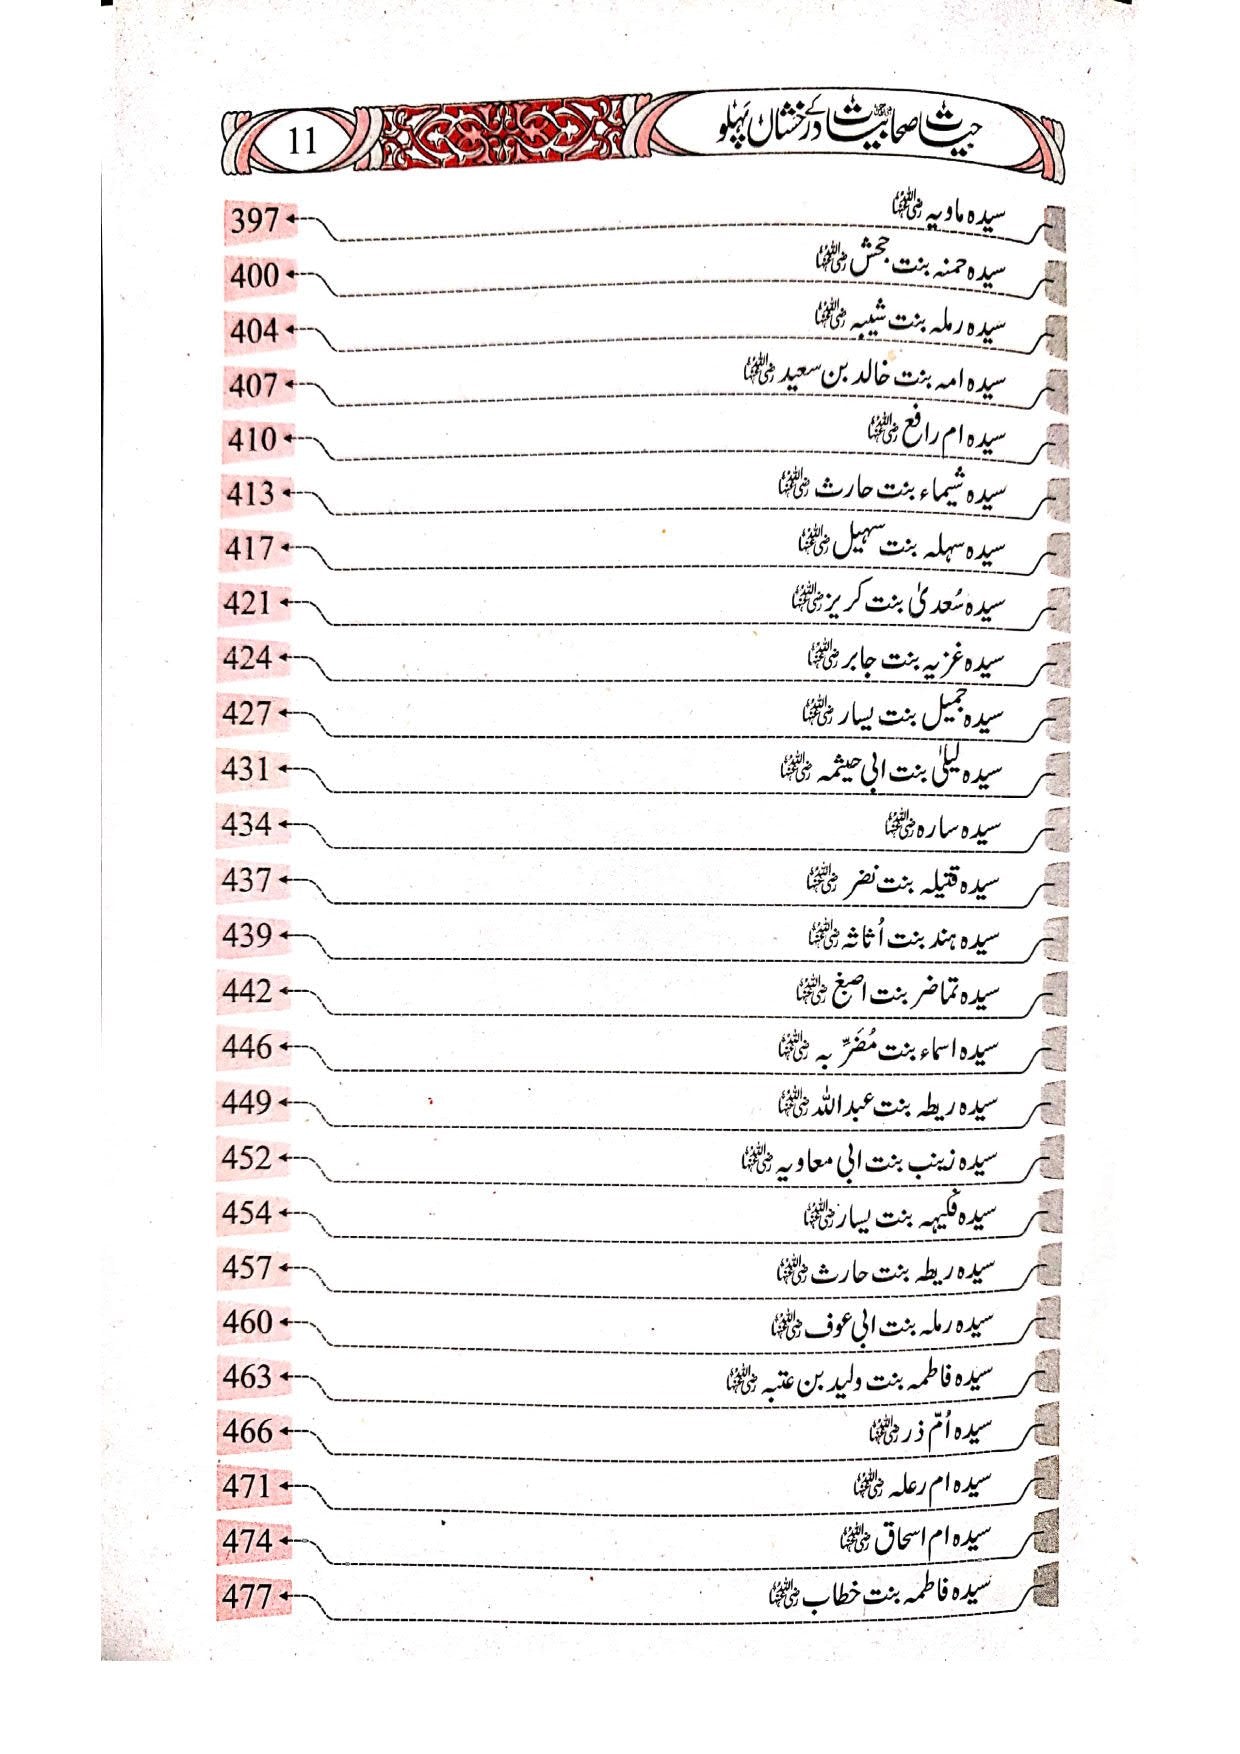 حیات صحابیات کے درخشاں پہلو 11
سیدہ ماویہ رضی اللہ عنہا 397
سیدہ حمنہ بنت جحش رضی اللہ عنہا 400
سیدہ رملہ بنت شیبہ رضی اللہ عنہا 404
سیدہ امہ بنت خالد بن سعید رضی اللہ عنہا 407
سیدہ ام رافع رضی اللہ عنہا 410
سیدہ شیماء بنت حارث رضی اللہ عنہا 413
سیدہ سہلہ بنت سہیل رضی اللہ عنہا 417
سیدہ سُعدیٰ بنت کریز رضی اللہ عنہا 421
سیدہ غزیہ بنت جابر رضی اللہ عنہا 424
سیدہ جمیل بنت یسار رضی اللہ عنہا 427
سیدہ لیلیٰ بنت ابی حیثمہ رضی اللہ عنہا 431
سیدہ سارہ رضی اللہ عنہا 434
سیدہ قتیلہ بنت نضر رضی اللہ عنہا 437
سیدہ ہند بنت اُثاثہ رضی اللہ عنہا 439
سیدہ تماضر بنت اصبغ رضی اللہ عنہا 442
سیدہ اسماء بنت مُضَرِّبہ رضی اللہ عنہا 446
سیدہ ریطہ بنت عبداللہ رضی اللہ عنہا 449
سیدہ زینب بنت ابی معاویہ رضی اللہ عنہا 452
سیدہ فکیہہ بنت یسار رضی اللہ عنہا 454
سیدہ ریطہ بنت حارث رضی اللہ عنہا 457
سیدہ رملہ بنت ابی عوف رضی اللہ عنہا 460
سیدہ فاطمہ بنت ولید بن عتبہ رضی اللہ عنہا 463
سیدہ اُمّ ذر رضی اللہ عنہا 466
سیدہ ام رعلہ رضی اللہ عنہا 471
سیدہ ام اسحاق رضی اللہ عنہا 474
سیدہ فاطمہ بنت خطاب رضی اللہ عنہا 477